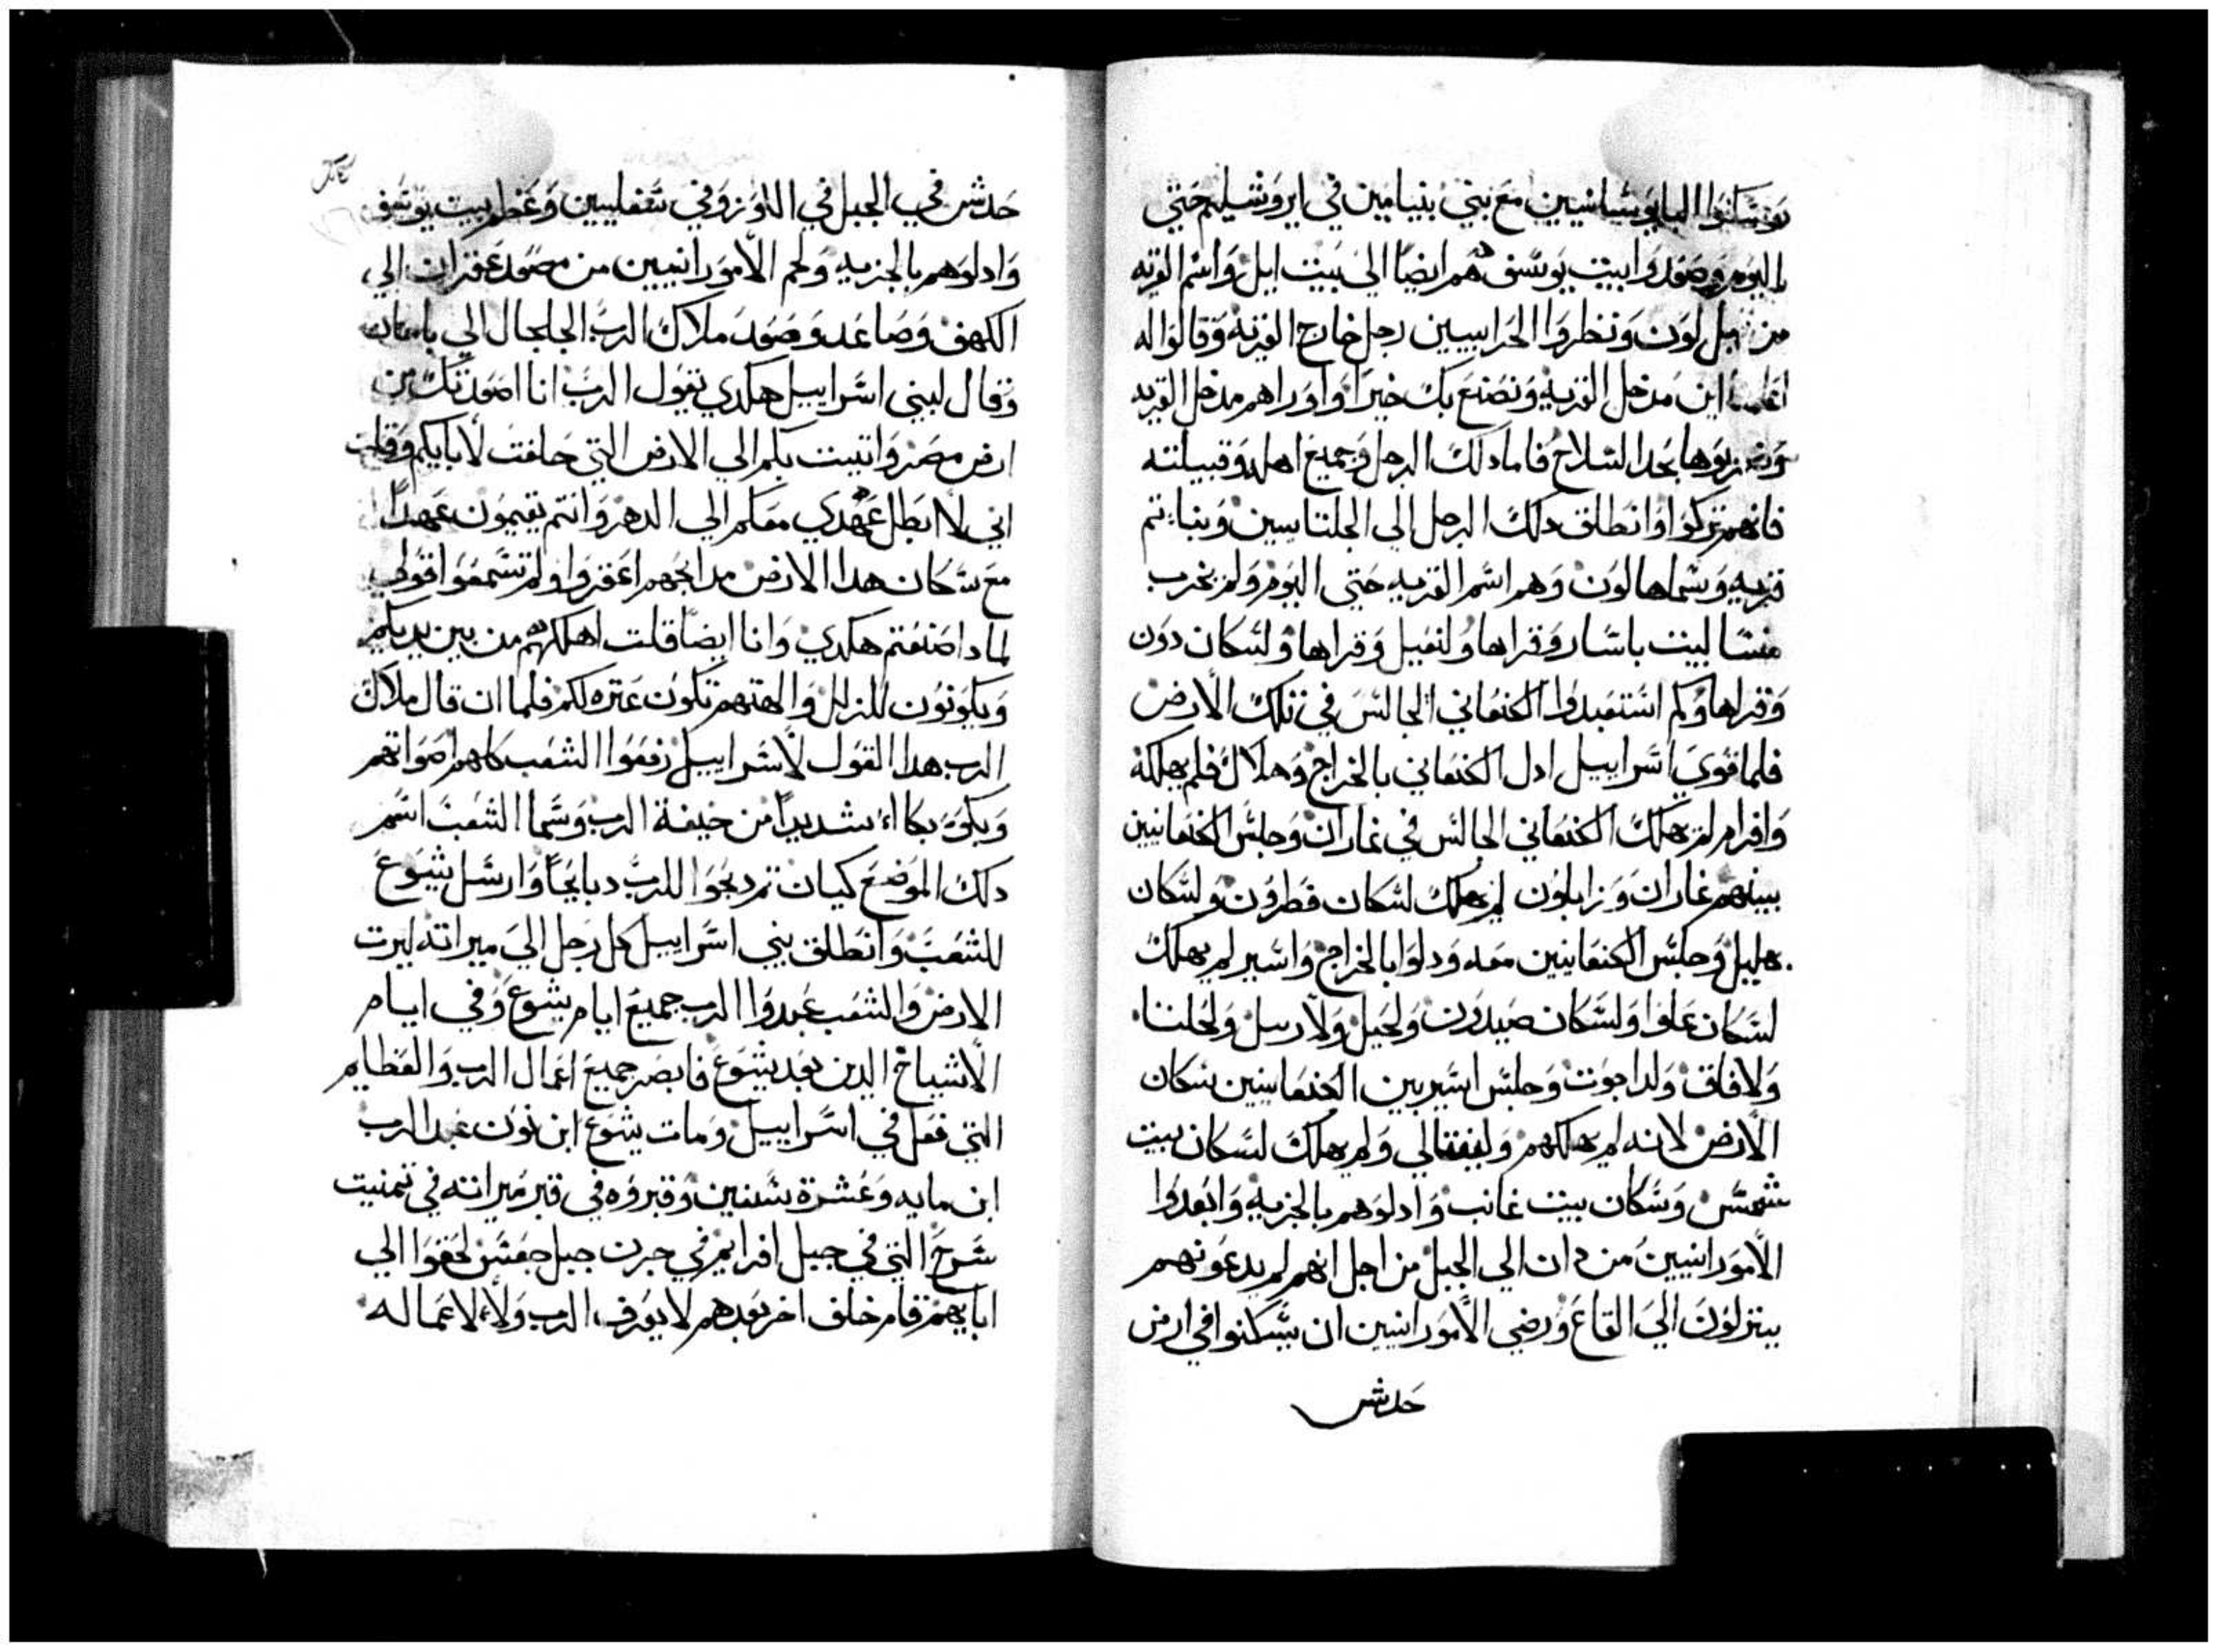 وسكنوا اليابوسانيين مع بني بنيامين في ايروشليم حتي
اليوم وصعدوا بيت يوسف هم ايضا الي بيت ايل واسم القريه
من قبل لون ونظروا الحراسيين رجل خارج القريه وقالوا له
اعلمنا اين مدخل القريه ونصنع بك خيرا واوراهم مدخل القريه
وضربوها بحد السلاح فاما دلك الرجل وجميع اهله وقبيلته
فانهم تركوا وانطلق دلك الرجل الي الجلتانيين وبنا تم
قريه وسماها لون وهم اسم القريه حتي اليوم ولم يخرب
منسا لبيت باسار وقراها ولنعيل وقراها ولسكان دون
وقراها ولم استعبدوا الكنعاني الجالس في تلك الارض
فلما قوي اسراييل ادل الكنعاني بالخراج وهلاك فلم يهلكه
وافرام لم يهلك الكنعاني الجالس في غاران وجلس الكنعانيين
بينهم غاران وزابلون لم يهلك لسكان قطرون ولسكان
هليل وجلس الكنعانيين معه ودلوا بالخراج واسير لم يهلك
لسكان عاوا ولسكان صيدون ولحيل ولارسل ولحلنا
ولافاق ولداحوت وجلس اسير بين الكنعانيين سكان
الارض لانه لم يهلكهم ولنفتالي ولم يهلك لسكان بيت
شمس وسكان بيت غانب وادلوهم بالجزيه وابعدوا
الاموراسيين من دان الي الجبل من اجل انهم لم يدعونهم
ينزلون الي القاع ورضي الاموراسيين ان يسكنوا في ارض
حدش
حدش في الجبل في اللوز وفي سعفليين وعظم بيت يوسف
وادلوهم بالجزيه ولحم الامورانيين من مصعد عقران الي
الكهف وصاعد وصعد ملاك الرب الجلجال الي
وقال لبني اسراييل هكدي يقول الرب انا اصعدتك من
ارض مصر واتيت بكم الي الارض التي حلفت لابايكم وقلت
اني لا ابطل عهدي معكم الي الدهر وانتم تقيمون عهدا
مع سكان هدا الارض مدابحهم اعقروا ولم تسمعوا قولي
لمادا صنعتم هكدي وانا ايضا قلت اهلكهم من بين يديكم
ويكونون للزلل والهتهم تكون عتره لكم فلما ان قال ملاك
الرب هدا القول لاسراييل رفعوا الشعب كلهم اصواتهم
وبكوه بكاء شديدا من خيفة الرب وسما الشعب اسم
دلك الموضع كيان تم دبحوا للرب دبايحا وارسل يشوع
للشعب وانطلق بني اسراييل كل رجل الي ميراته ليرت
الارض والشعب عبدوا الرب جميع ايام يشوع وفي ايام
الاشياخ الدين بعد يشوع فابصر جميع اعمال الرب والعظايم
التي فعل في اسراييل ومات يشوع ابن نون عبد الرب
ابن مايه وعشرة سنين وقبروه في قبر ميراته في تمنيت
سرح التي في جبل افرايم في جرن جبل جعس لحقوا الي
ابايهم قام خلف اخر بعدهم لا يعرف الرب ولا لاعماله